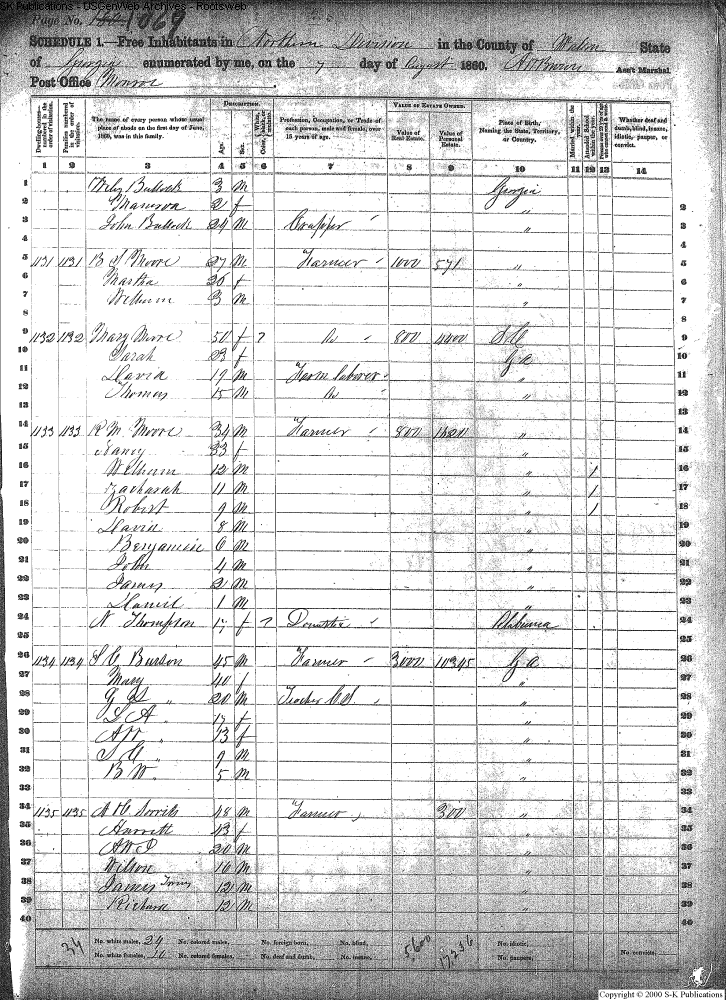 SK Publications - USGenWeb Archives - Rootsweb
Page No. 1069
SCHEDULE 1.—Free Inhabitants in Northern Division in the County of Walton State
of Georgia enumerated by me, on the 7 day of August 1860. Ass't Marshal.
Post Office Monroe
Dwelling-houses—numbered in the order of visitation.
Families numbered in the order of visitation.
The name of every person whose usual place of abode on the first day of June, 1860, was in this family.
DESCRIPTION.
Age.
Sex.
Color, White, black, or mulatto.
Profession, Occupation, or Trade of each person, male and female, over 15 years of age.
VALUE OF ESTATE OWNED.
Value of Real Estate.
Value of Personal Estate.
Place of Birth, Naming the State, Territory, or Country.
Married within the year.
Attended School within the year.
Whether deaf and dumb, blind, insane, idiotic, pauper, or convict.
1 2 3 4 5 6 7 8 9 10 11 12 13 14
1 Bullock 3 M Georgia
2 2 f "
3 John Bullock 24 M "
4
5 1131 1131 B S Moore 27 M Farmer 1000 571 "
6 Martha 26 f "
7 William 3 M "
8
9 1132 1132 Mary Moore 50 f 800 4400 S.C.
10 Sarah 23 f Ga
11 David 19 M Farm laborer "
12 Thomas 15 M "
13
14 1133 1133 R M Moore 34 M Farmer 800 "
15 Nancy 33 f "
16 William 12 M " 1
17 Zachariah 11 M " 1
18 Robert 9 M " 1
19 David 8 M "
20 Benjamin 6 M "
21 John 4 M "
22 James 2 M "
23 Daniel 1 M "
24 N Thompson 17 f Domestic Alabama
25
26 1134 1134 S C Burson 45 M Farmer 3000 10345 Ga
27 Mary 40 f "
28 G S " 20 M Teacher C.S. "
29 S A " 17 f "
30 A W " 13 f "
31 S C " 9 M "
32 B W " 5 M "
33
34 1135 1135 48 M Farmer 300 "
35 Harriett 43 f "
36 20 M "
37 Wilson 16 M "
38 James Twins 12 M "
39 Richard 12 M "
40
34 No. white males, 24 No. colored males, No. foreign born, No. blind, 5,600 17,236 No. idiotic,
No. white females, 10 No. colored females, No. deaf and dumb, No. insane, No. paupers, No. convicts,
Copyright © 2000 S-K Publications